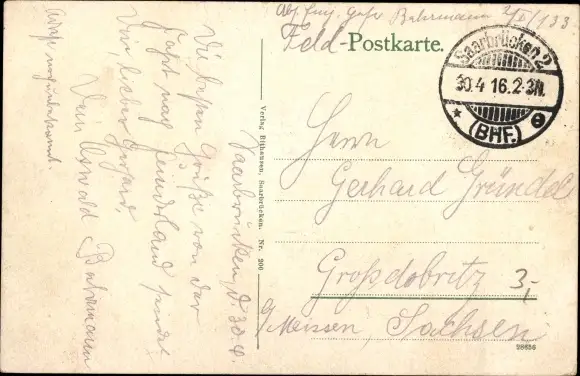 Abs. Bahrmann 2/ /133
Feld-Postkarte.
Saarbrücken 2
30.4 16.2-3N.
* (BHF.) e
Herrn
Gerhard Gründel
Großdobritz
b/Meissen, Sachsen
3,-
98656
Verlag Bithausen, Saarbrücken. Nr. 200
Saarbrücken, d. 30.4.
Die besten Grüße von der
Fahrt nach Feindesland sendet
Dir, lieber Gerhard,
Dein Oswald Bahrmann
Adresse noch unbekannt.